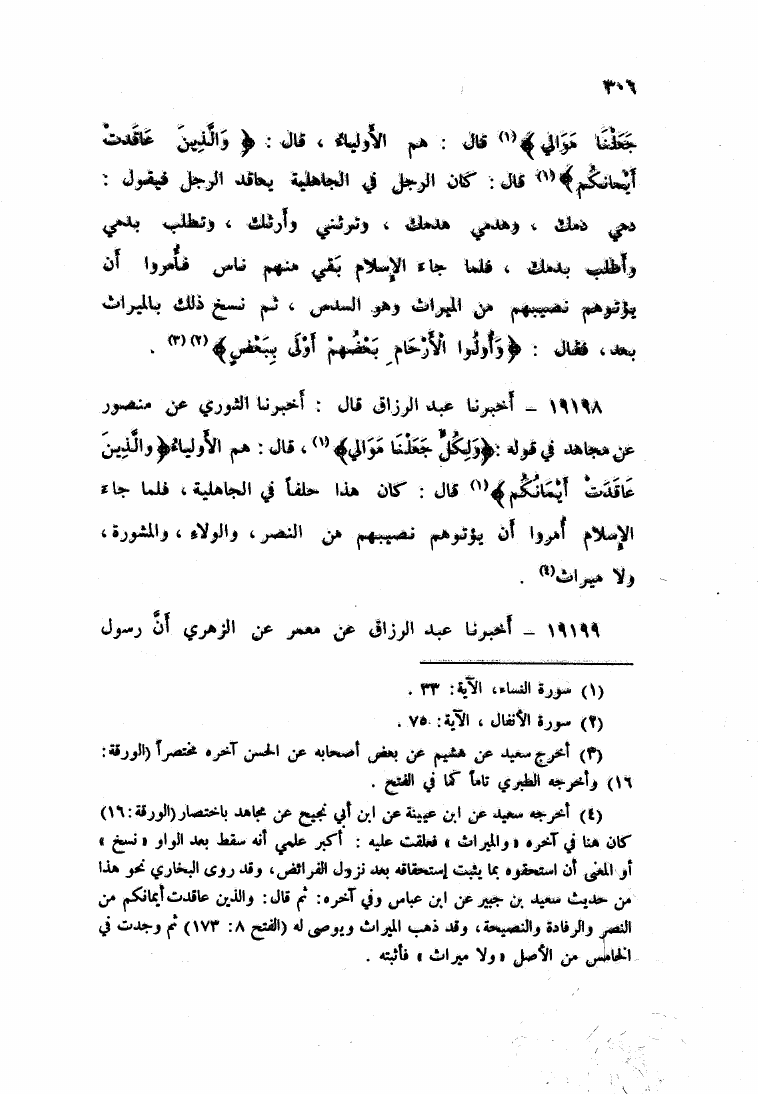 ٣٠٦
جَعَلْنَا مَوَالِيَ﴾(١) قال : هم الأَولياءُ ، قال : ﴿ وَالَّذِينَ عَاقَدتْ
أَيْمانكُم﴾(١) قال : كان الرجل في الجاهلية يعاقد الرجل فيقول :
دمي دمك ، وهدمي هدمك ، وترثني وأَرثك ، وتطلب بدمي
وأَطلب بدمك ، فلما جاءَ الإِسلام بَقي منهم ناس فأُمروا أَن
يؤتوهم نصيبهم من الميراث وهو السدس ، ثم نسخ ذلك بالميراث
بعد ، فقال : ﴿وَأُولُوا الْأَرْحَامِ بَعْضُهمْ أَوْلَى بِبَعْضٍ﴾(٢)(٣) .
١٩١٩٨ – أَخبرنا عبد الرزاق قال : أَخبرنا الثوري عن منصور
عن مجاهد في قوله : ﴿وَلِكُلٍّ جَعَلْنَا مَوَالِيَ﴾(١) ، قال : هم الأَولياءُ ﴿والَّذِينَ
عَاقَدَتْ أَيْمَانُكُم﴾(١) قال : كان هذا حلفاً في الجاهلية ، فلما جاءَ
الإِسلام أُمروا أَن يؤتوهم نصيبهم من النصر ، والولاءِ ، والمشورة ،
ولا ميراث(٤) .
١٩١٩٩ – أَخبرنا عبد الرزاق عن معمر عن الزهري أَنَّ رسول
(١) سورة النساء، الآية: ٣٣ .
(٢) سورة الأنفال ، الآية: ٧٥ .
(٣) أخرج سعيد عن هشيم عن بعض أصحابه عن الحسن آخره مختصراً (الورقة:
١٦) وأخرجه الطبري تاماً كما في الفتح .
(٤) أخرجه سعيد عن ابن عيينة عن ابن أبي نجيح عن مجاهد باختصار (الورقة: ١٦)
كان هنا في آخره «والميراث» فعلقت عليه : أكبر علمي أنه سقط بعد الواو «نسخ»
أو المعنى أن استحقوه بما يثبت إستحقاقه بعد نزول الفرائض، وقد روى البخاري نحو هذا
من حديث سعيد بن جبير عن ابن عباس وفي آخره: ثم قال: والذين عاقدت أيمانكم من
النصر والرفادة والنصيحة، وقد ذهب الميراث ويوصى له (الفتح ٨: ١٧٣) ثم وجدت في
الخامس من الأصل «ولا ميراث» فأثبته .